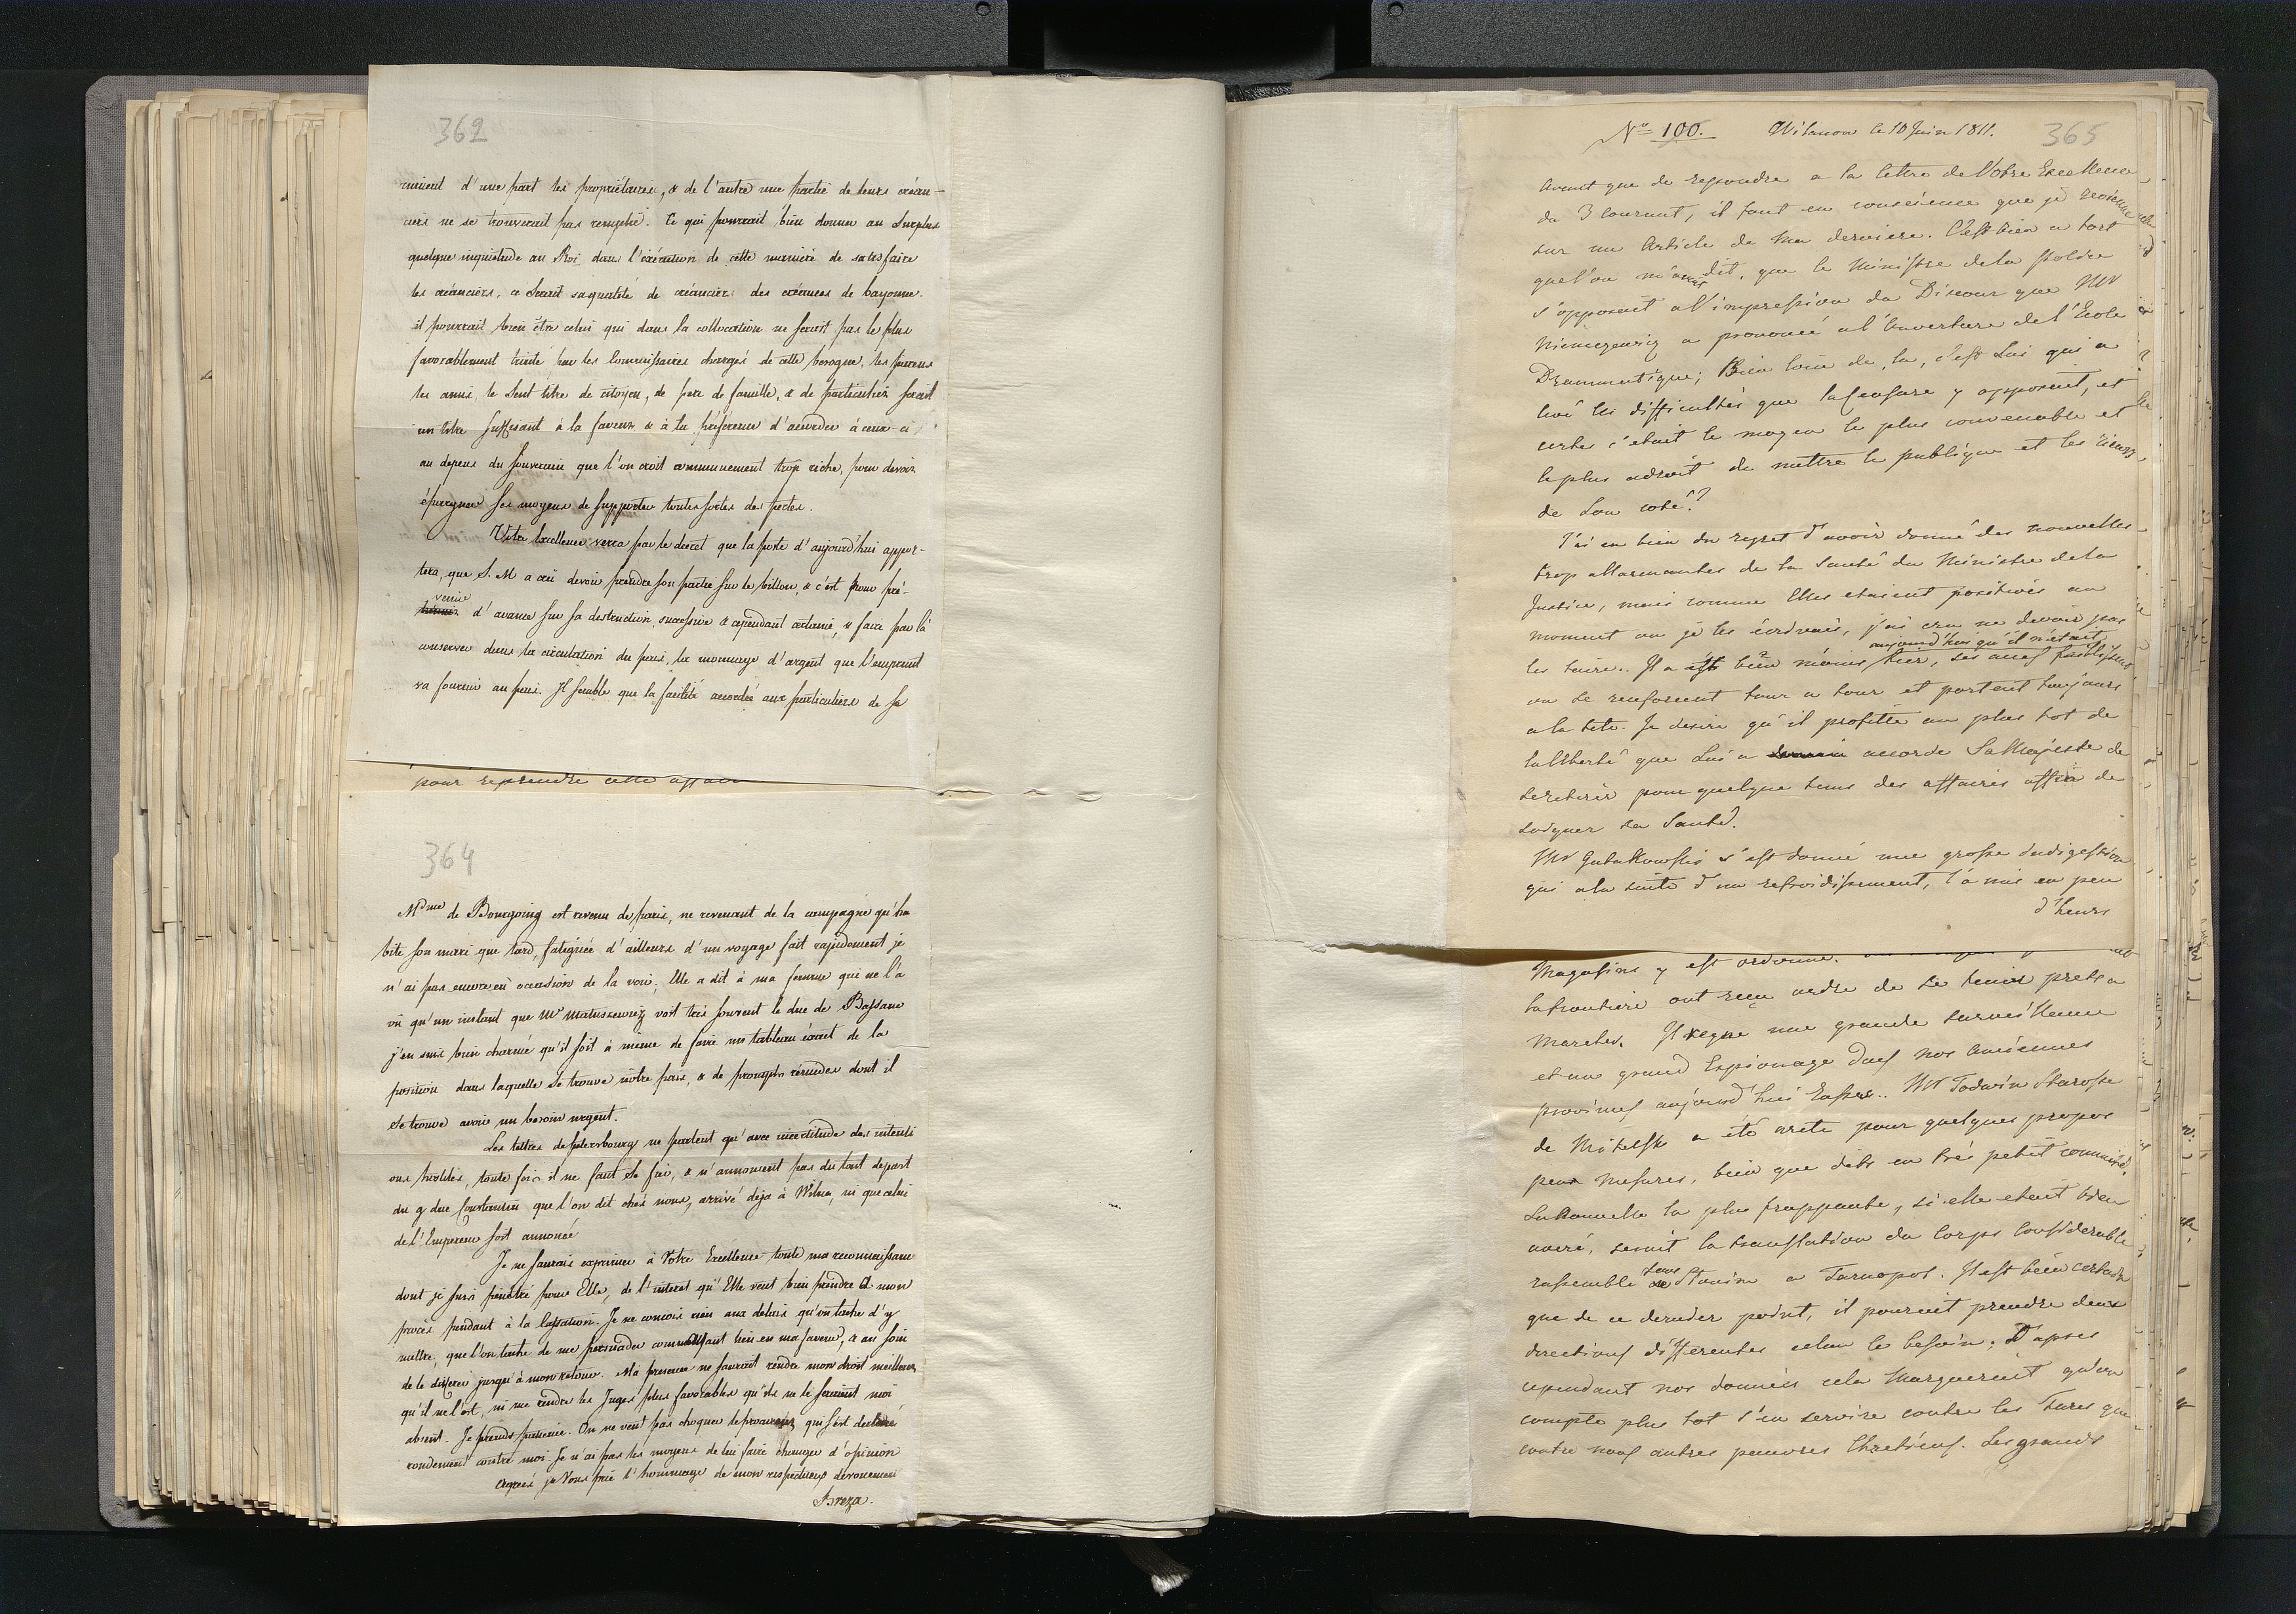 362
raient d'une part les propriétaires, & de l'autre une partie de leurs créan-
ciers ne se trouverait pas remplie. Ce qui pourrait bien donner au surplus
quelque inquiétude au Roi dans l'exécution de cette manière de satisfaire
les créanciers, ce serait sa qualité de créancier des créances de bayonne.
il pourrait bien être celui qui dans la collocation ne serait pas le plus
favorablement traité par les Commissaires chargés de cette besogne, les parens
les amis, le seul titre de citoyen, de pere de famille, & de particulier serait
un titre suffisant à la faveur & à la préférence d'accorder à ceux-ci
au depens du souverain que l'on croit communement trop riche, pour devoir
épargner ses moyens de supporter toutes sortes des pertes.
Votre Excellence verra par le decret que la poste d'aujourd'hui appor-
tera, que S. M a crû devoir prendre son partie sur le billon, & c'est pour pré-
venir d'avance sur sa destruction successive & cependant certaine, & faire par là
conserver dans la circulation du pais, la monnaye d'argent que l'emprunt
va fournir au pais. Il semble que la facilité accordée aux particuliers de se
pour reprendre cette affaire
364
Mdme de Bourgoing est revenu de paris, ne revenant de la campagne qu'ha
bite son mari que tard, fatiguée d'ailleurs d'un voyage fait rapidement je
n'ai pas encore eû occasion de la voir. Elle a dit à ma femme que ne l'a
vû qu'un instant que Mr Matuszewicz voit très souvent le duc de Bassano
j'en suis bien charmé qu'il soit à même de faire un tableau exact de la
position dans laquelle se trouve nôtre pais, & de prompts rémedes dont il
se trouve avoir un besoin urgent.
Les lettres de petersbourg ne parlent qu'avec incertitude des intenti
ons hostiles, toute fois il ne faut se fier, & n'annoncent pas du tout depart
du g duc Constantin que l'on dit chés nous, arrivé deja à Wilna, ni que celui
de l'Empereur soit annoncé
Je ne saurais exprimer à Votre Excellence toute ma reconnaissance
dont je suis penétré pour Elle, de l'interet qu'Elle veut bien prendre à mon
procès pendant à la Cassation. Je ne conçois rien aux delais qu'on tache d'y
mettre, que l'on tente de me persuader comme étant bien en ma faveur, & au soin
de le differer jusqu'à mon retour. Ma presence ne saurait rendre mon droit meilleur
qu'il ne l'est, ni me rendre les Juges plus favorables qu'ils ne le seraient moi
absent. Je prends patience. On ne veut pas choquer le procureur qui s'est declaré
rondement contre moi. Je n'ai pas les moyens de lui faire changer d'opinion
Agréés je Vous prie l'hommage de mon respectueux dévouement
Breza.
No 100. Wilanow le 10 Juin 1811. 365
Avant que de repondre a la lettre de Votre Excellence
du 3 Courant, il faut en conscience que je revienne
sur un Article de ma derniere. C'est bien a tort
que l'on m'avait dit, que le Ministre de la Police
s'opposait a l'impression du Discour que Mr
Niemcewicz a prononcé a l'Ouverture de l'Ecole
Drammatique; Bien loin de la, c'est Lui qui a
levé les difficultés que la Censure y opposait, et
certe c'etait le moyen le plus convenable et
le plus adroit de mettre le publique et les rieurs
de Son coté?
J'ai eu bien du regret d'avoir donné des nouvelles
trop allarmantes de la Santé du Ministre de la
Justice, mais comme Elles etaient positives au
moment ou je les écrivais, j'ai cru ne devoir pas
aujourd'hui qu'il n'etait
les taire. Il a été bien mieux hier, ses maux faiblissent
ou se renforcent tour a tour et portent toujours
a la tete. Je desire qu'il profite au plus tot de
la liberté que Lui a accorde Sa Majesté de
se retirer pour quelque tems des affaires affin de
soigner sa Santé.
Mr Gutakowski s'est donné une grosse Indigestion
qui a la suite d'un refroidissement, l'a mis en peu
d'heurs
Magasins y est ordonné.
la frontiere ont reçu ordre de se tenir prets a
marcher. Il regne une grande surveillance
et un grand Espionage dans nos anciennes
provinces aujourd'hui Russes. Mr Todwin Staroste
de Mstelsk a été areté pour quelques propos
peu mesurés, bien que dits en très petit commité.
La Nouvelle la plus frappante, si elle etait bien
averé, serait la translation du Corps Considerable
rassemblé sous Slonim a Tarnopol. Il est bien certain
que de ce dernier point, il pourait prendre deux
directions differentes selon le besoin; D'apres
cependant nos données cela marquerait qu'on
compte plus tot s'en servire contre les Turcs que
contre nous autres pauvres Chretiens. Les grands